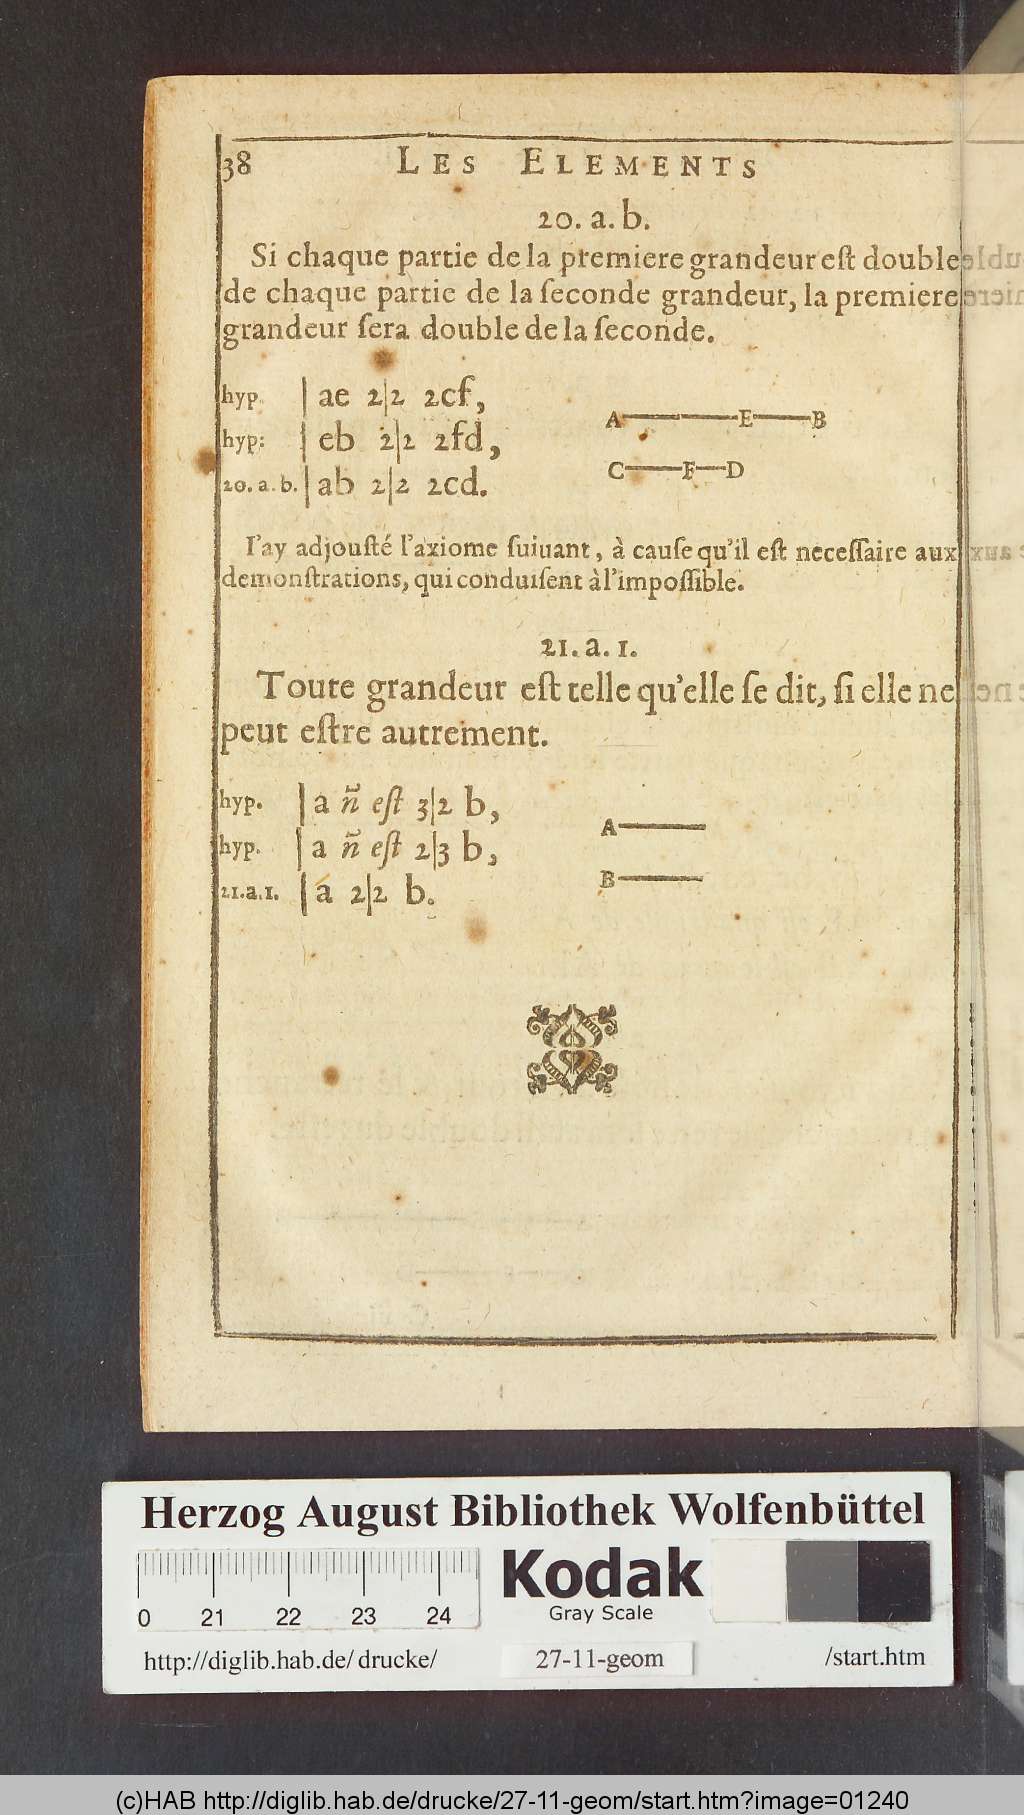 38 LES ELEMENTS
20. a. b.
Si chaque partie de la premiere grandeur eſt double
de chaque partie de la ſeconde grandeur, la premiere
grandeur ſera double de la ſeconde.
hyp. | ae 2|2 2cf,
hyp: | eb 2|2 2fd,
20. a. b. | ab 2|2 2cd.
A E B
C F D
I'ay adjouſté l'axiome ſuiuant, à cauſe qu'il eſt neceſſaire aux
demonſtrations, qui conduiſent à l'impoſſible.
21. a. 1.
Toute grandeur eſt telle qu'elle ſe dit, ſi elle ne
peut eſtre autrement.
hyp. | a n̄ eſt 3|2 b,
hyp. | a n̄ eſt 2|3 b,
21. a. 1. | a 2|2 b.
A
B
Herzog August Bibliothek Wolfenbüttel
0 21 22 23 24
Kodak
Gray Scale
http://diglib.hab.de/ drucke/ 27-11-geom /start.htm
(c)HAB http://diglib.hab.de/drucke/27-11-geom/start.htm?image=01240